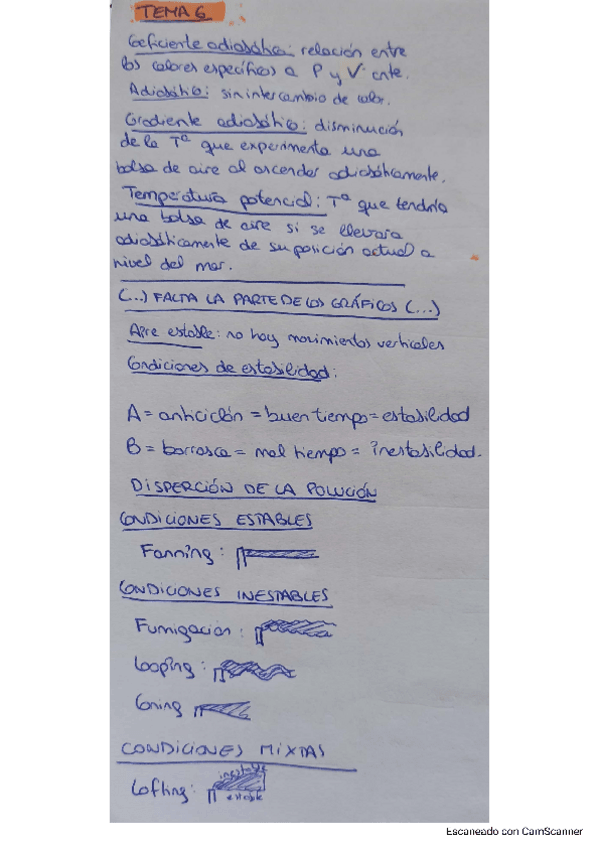 TEMA 6
Coeficiente adiabático: relación entre
los calores específicos a P y V cnte.
Adiabático: sin intercambio de calor.
Gradiente adiabático: disminución
de la Tª que experimenta una
bolsa de aire al ascender adiabáticamente.
Temperatura potencial: Tª que tendría
una bolsa de aire si se llevara
adiabáticamente de su posición actual a
nivel del mar.
(...) FALTA LA PARTE DE LOS GRÁFICOS (...)
Aire estable: no hay movimientos verticales
Condiciones de estabilidad:
A = anticiclón = buen tiempo = estabilidad
B = borrasca = mal tiempo = inestabilidad.
DISPERCIÓN DE LA POLUCIÓN
CONDICIONES ESTABLES
Fanning:
CONDICIONES INESTABLES
Fumigación:
Looping:
Coning
CONDICIONES MIXTAS
inestable
Lofting:
estable
Escaneado con CamScanner